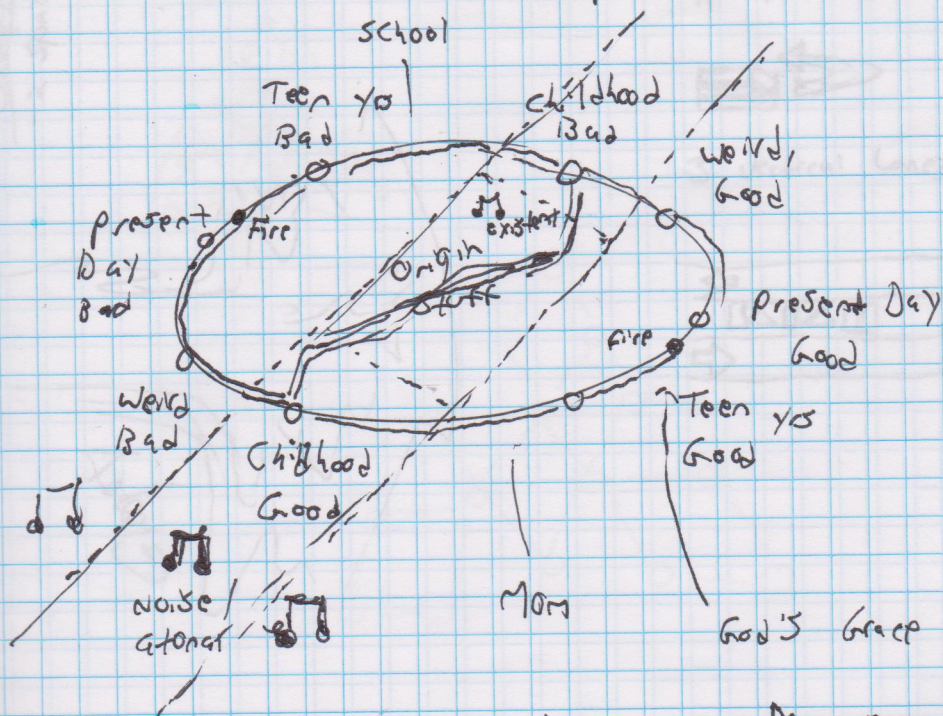 School
Teen yrs
Bad
Childhood
Bad
Weird,
Good
Present
Day
Bad
Fire
existent
Origin
Stuff
Present Day
Good
Fire
Weird
Bad
Childhood
Good
Teen yrs
Good
Noise/
atonal
Mom
God's Grace